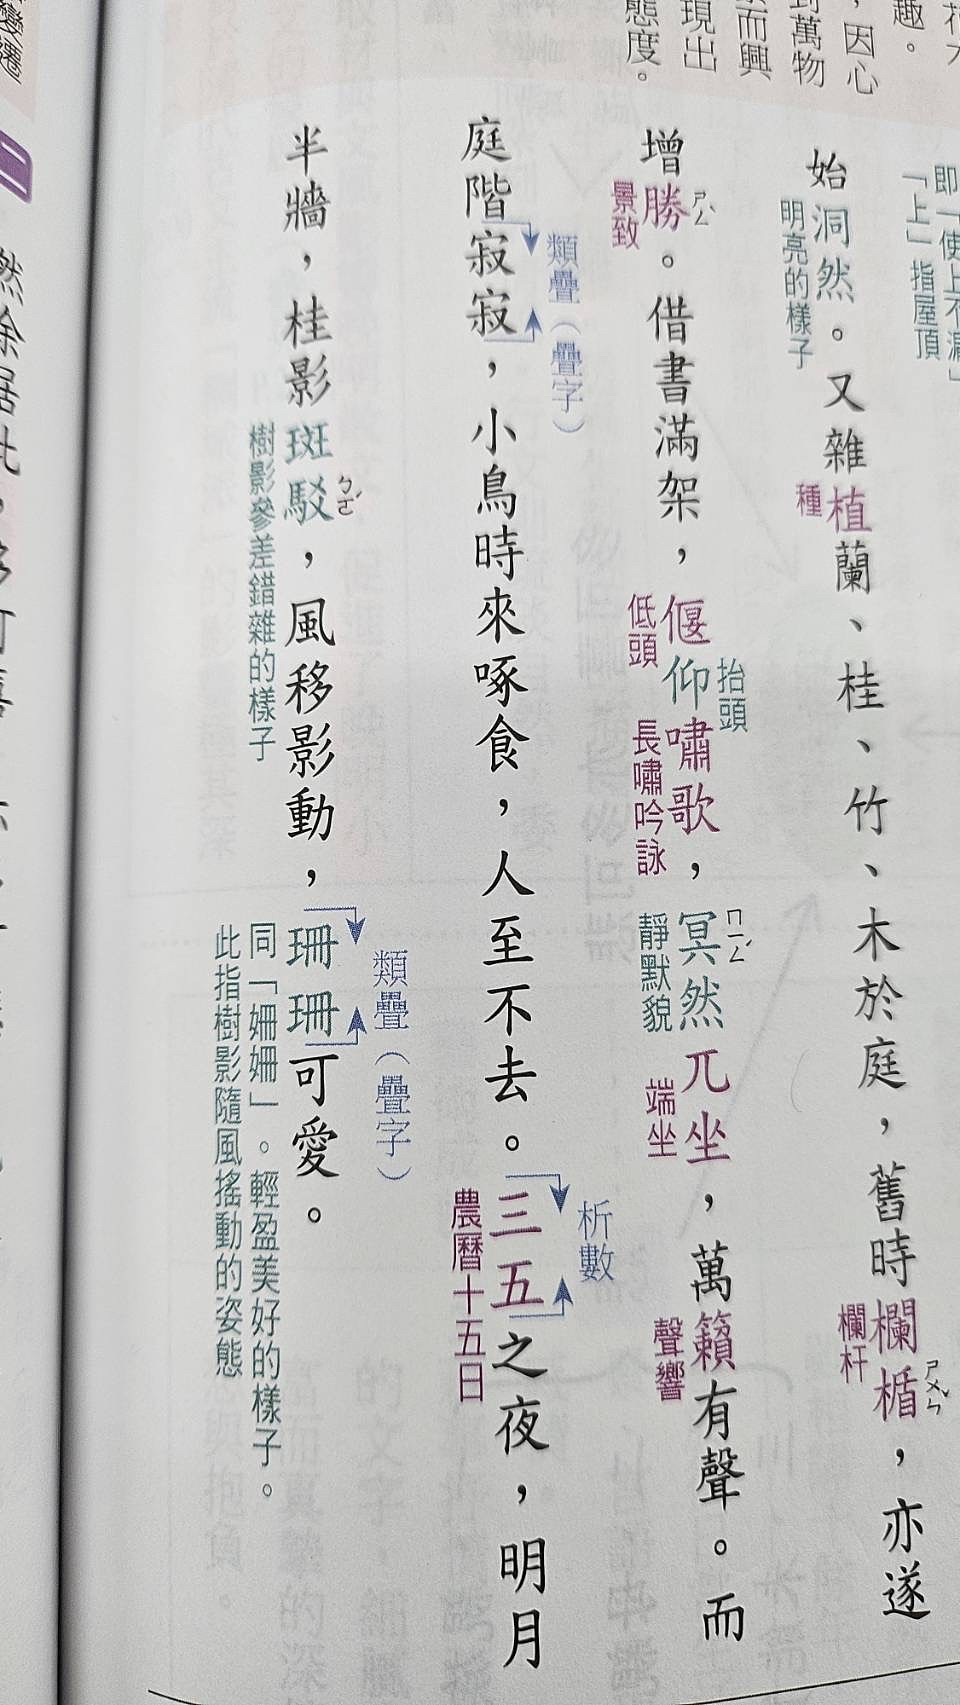 因心
到萬物
而興
現出
態度。
趣。
即「使上不漏」
「上」指屋頂
始洞然。又雜植蘭、桂、竹、木於庭,舊時欄楯,亦遂
明亮的樣子
種
欄杆
ㄕㄨㄣˇ
增勝。借書滿架,偃仰嘯歌,冥然兀坐,萬籟有聲。而
ㄕㄥˋ
景致
低頭
抬頭
長嘯吟詠
ㄇㄧㄥˊ
靜默貌
端坐
聲響
庭階寂寂,小鳥時來啄食,人至不去。三五之夜,明月
類疊(疊字)
析數
農曆十五日
半牆,桂影斑駁,風移影動,珊珊可愛。
ㄅㄛˊ
樹影參差錯雜的樣子
類疊(疊字)
同「姍姍」。輕盈美好的樣子。
此指樹影隨風搖動的姿態
變遷